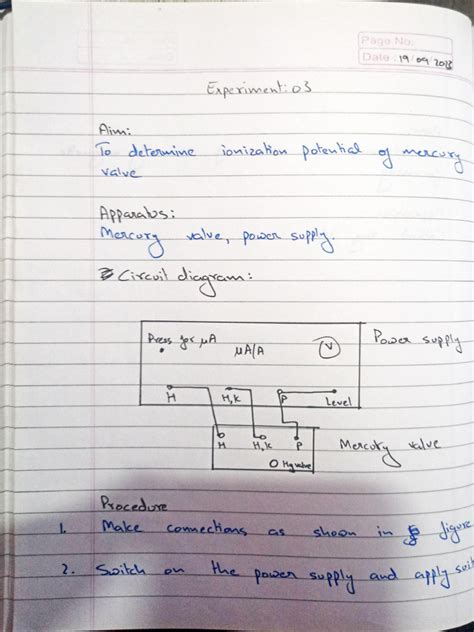 Page No.
Date: 19/09/2023
Experiment: 03
Aim:
To determine ionization potential of mercury
valve
Apparatus:
Mercury valve, power supply.
Circuit diagram:
Press for μA
μA/A
V
Power supply
H
H,K
P
Level
H
H,K
P
Mercury valve
Hg valve
Procedure
1. Make connections as shown in figure
2. Switch on the power supply and apply